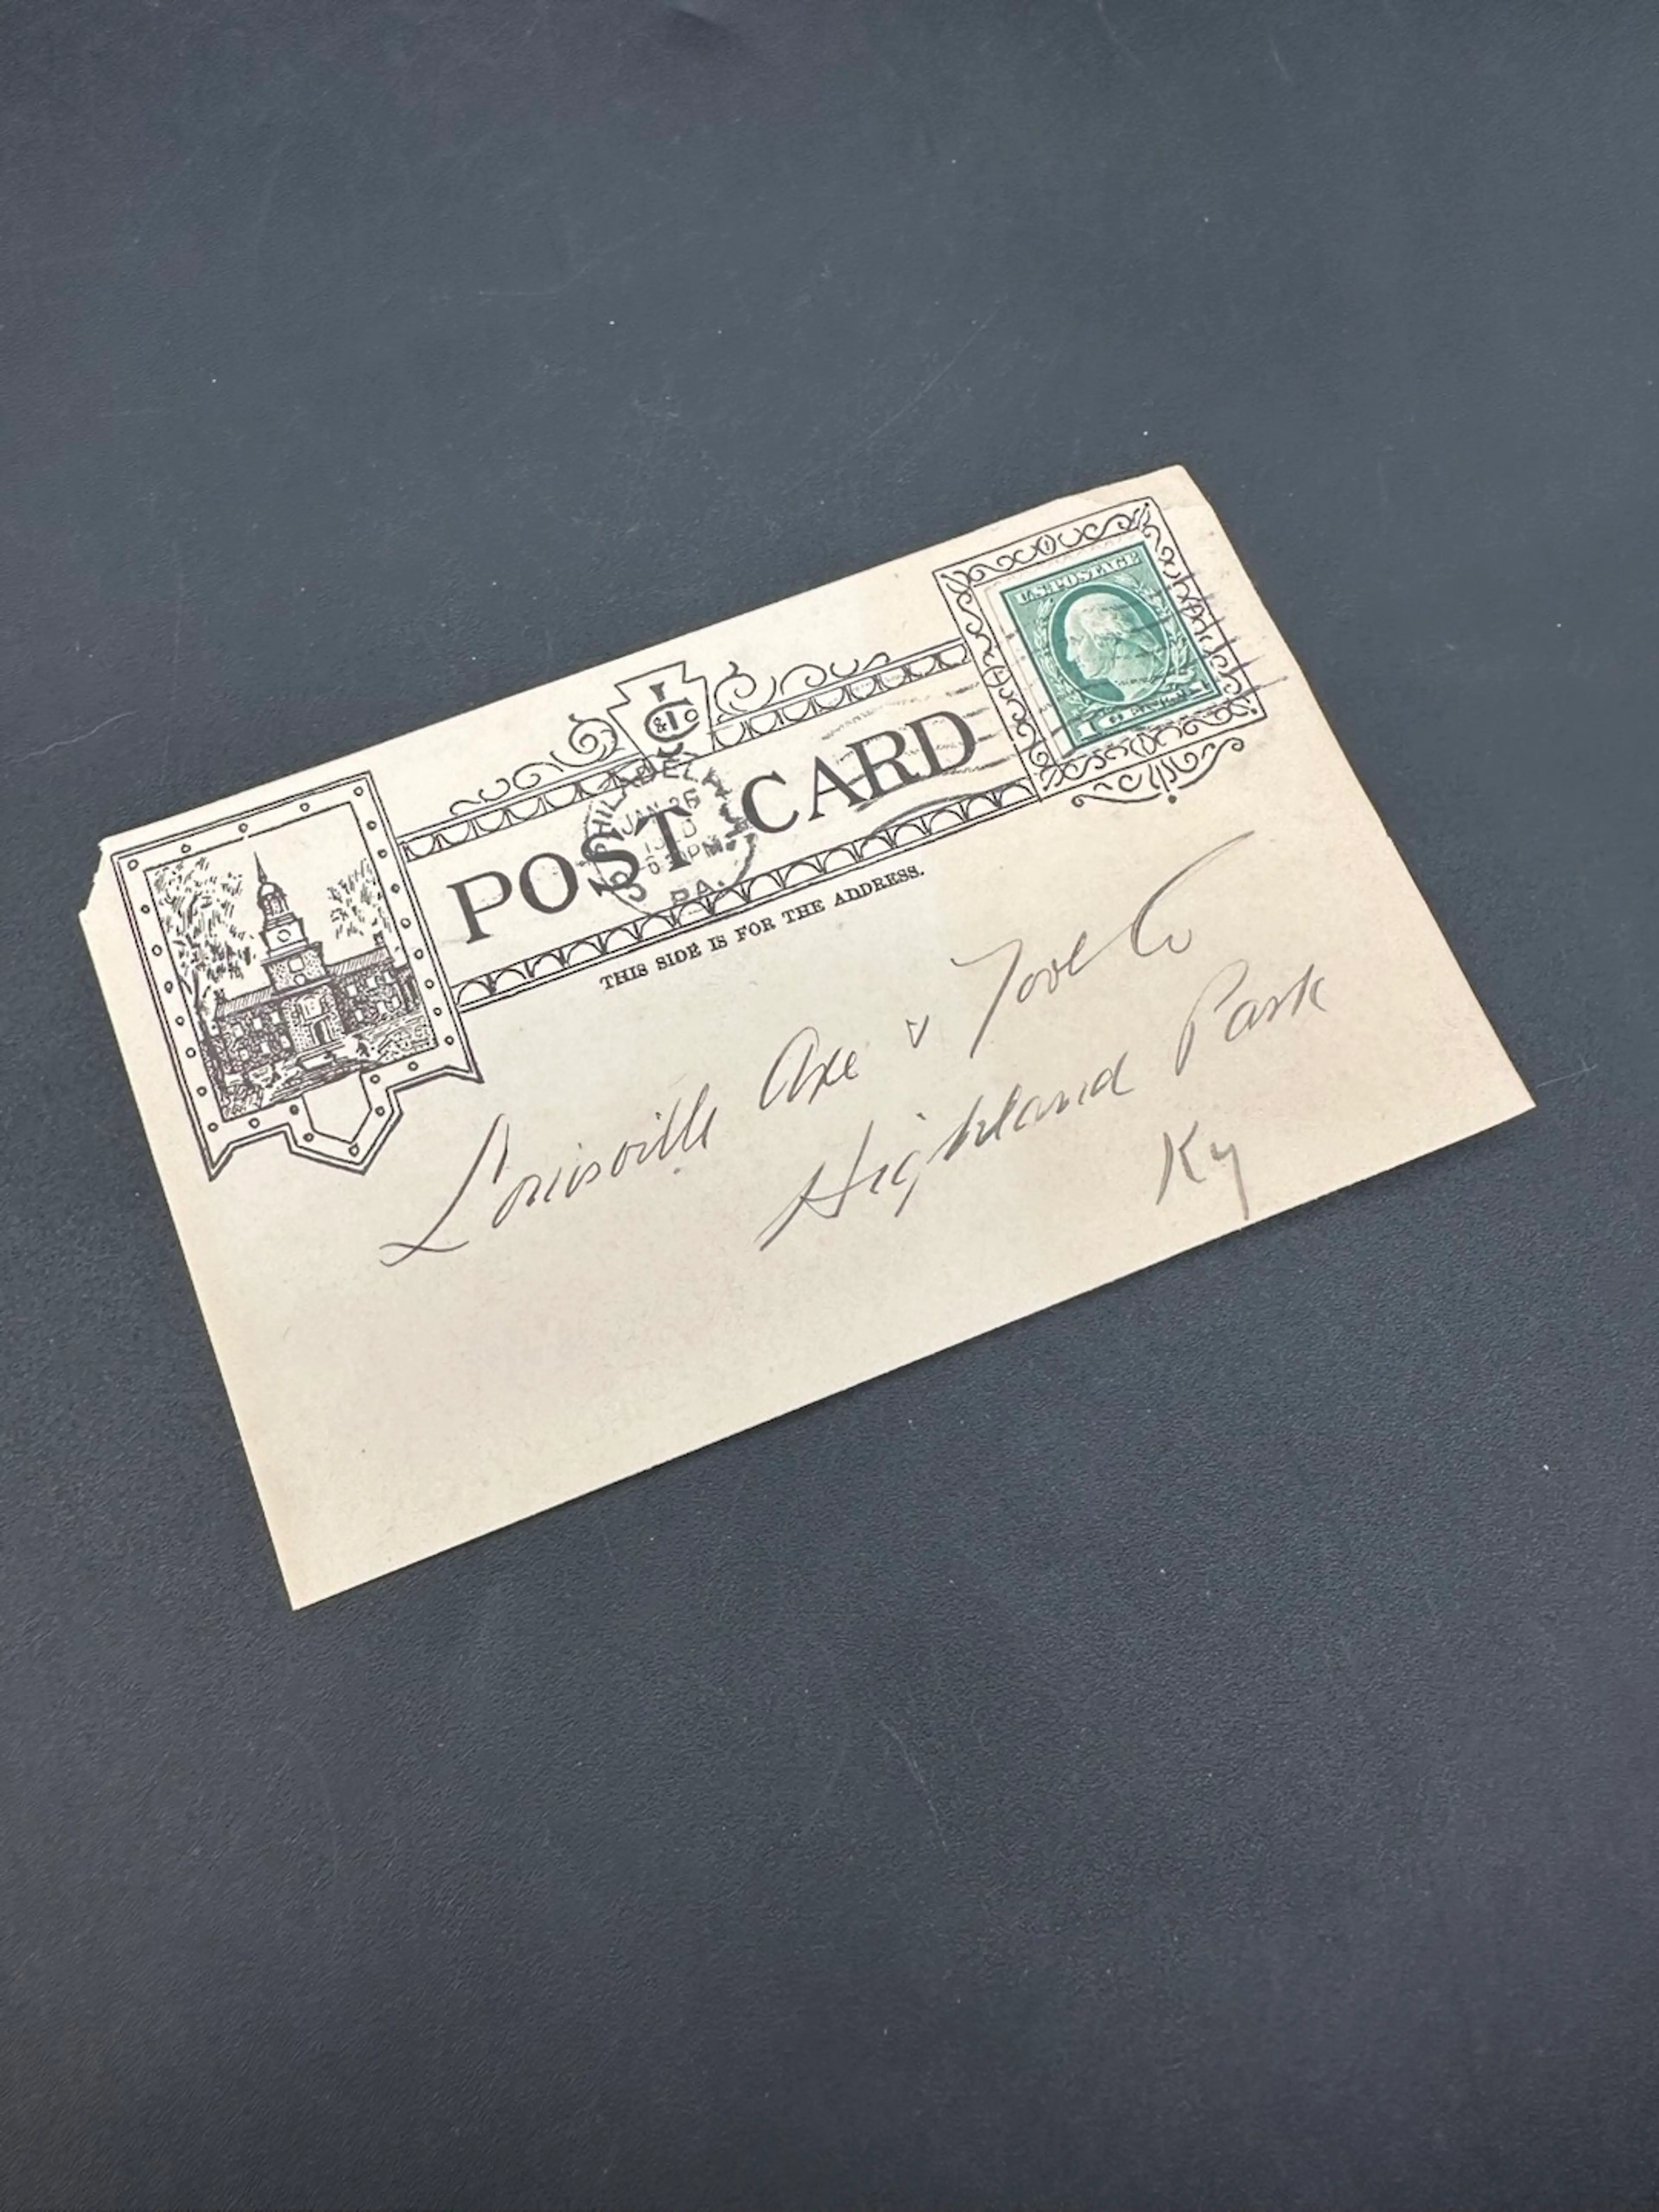 U.S. POSTAGE
1 CENT 1
I & Co
PHILADELPHIA
JAN 26
6 PM
PA.
POST CARD
THIS SIDE IS FOR THE ADDRESS.
Louisville Axe & Tool Co
Highland Park
Ky